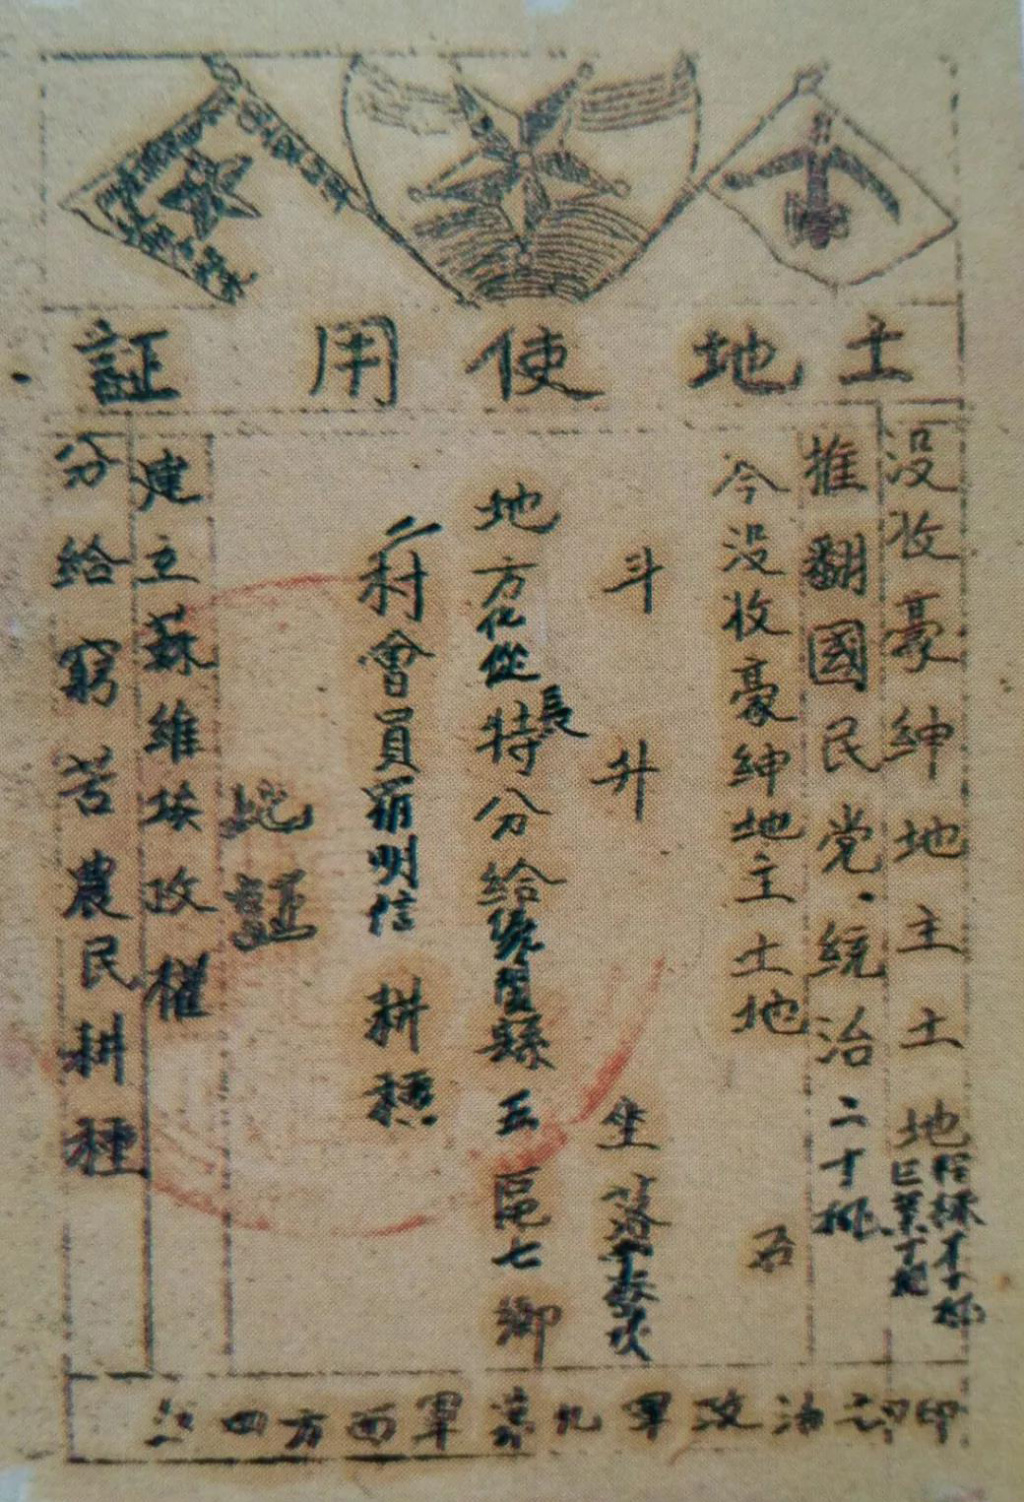 土地使用証
没收豪紳地主土地
推翻國民党統治二十挑
今没收豪紳地主土地 五
斗 升 坐落
地方化從長特分給
縣五區七鄉
村會員羅明信耕種
此証
建立蘇維埃政權
分給窮苦農民耕種
紅四方面軍第九軍政治部印